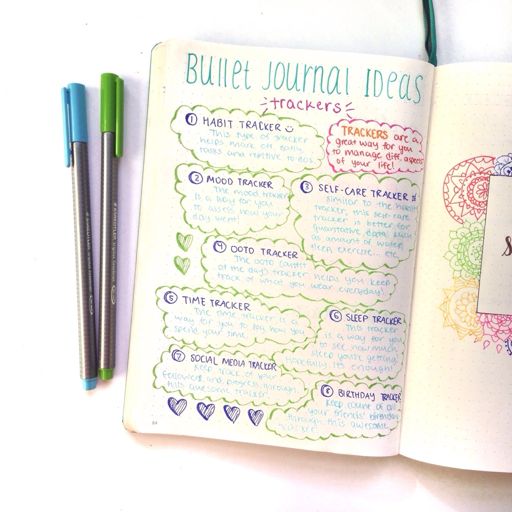 BULLET JOURNAL IDEAS
trackers
① HABIT TRACKER
This type of tracker
helps mark off daily
tasks and routine to-dos
TRACKERS are a
great way for you
to manage diff. aspects
of your life!
② MOOD TRACKER
The mood tracker
is a way for you
to assess how your
day went!
③ SELF-CARE TRACKER
similar to the habit
tracker, this self-care
tracker is better for
quantative data, such
as amount of water,
sleep, exercise... etc.
④ OOTD TRACKER
The OOTD (outfit
of the day) tracker helps you keep
track of what you wear everyday!
⑤ TIME TRACKER
The time tracker is a
way for you to log how you
spend your time.
⑥ SLEEP TRACKER
This tracker
is a way for you
to see how much
sleep you're getting,
hopefully it's enough!
⑦ SOCIAL MEDIA TRACKER
Keep track of your
followers and progress through
this tracker
⑧ BIRTHDAY TRACKER
Keep count of all
your friends' birthdays
through this awesome
tracker